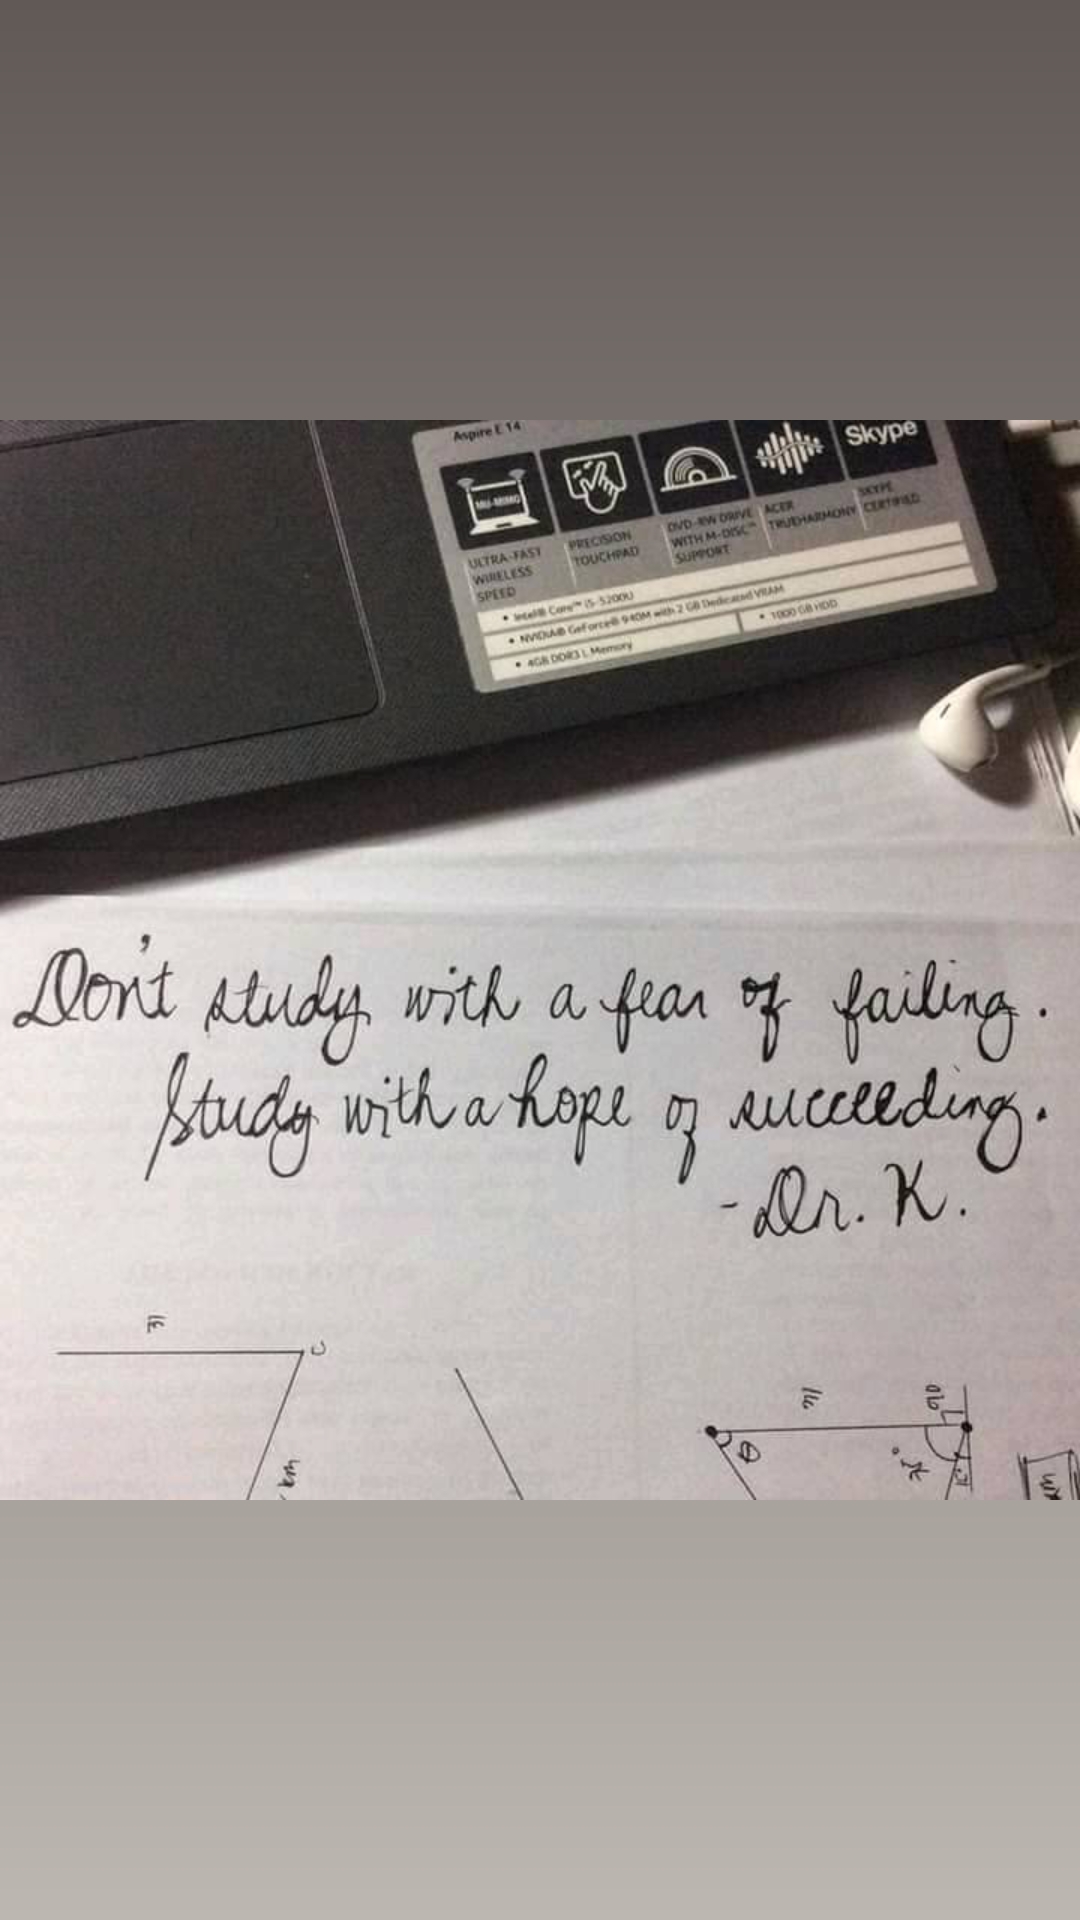 Aspire E 14
MU-MIMO
Skype
ULTRA-FAST
WIRELESS
SPEED
PRECISION
TOUCHPAD
DVD-RW DRIVE
WITH M-DISC™
SUPPORT
ACER
TRUEHARMONY
SKYPE
CERTIFIED
• Intel® Core™ i5-5200U
• NVIDIA® GeForce® 940M with 2 GB Dedicated VRAM
• 4GB DDR3 L Memory
• 1000 GB HDD
Don't study with a fear of failing.
Study with a hope of succeeding.
- Dr. K.
31
C
km
θ